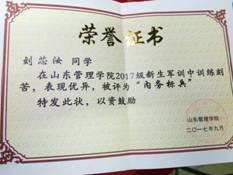 荣誉证书
刘蕊汝 同学
在山东管理学院2017级新生军训中训练刻
苦，表现优异，被评为“内务标兵”
特发此状，以资鼓励
山东管理学院
二〇一七年九月